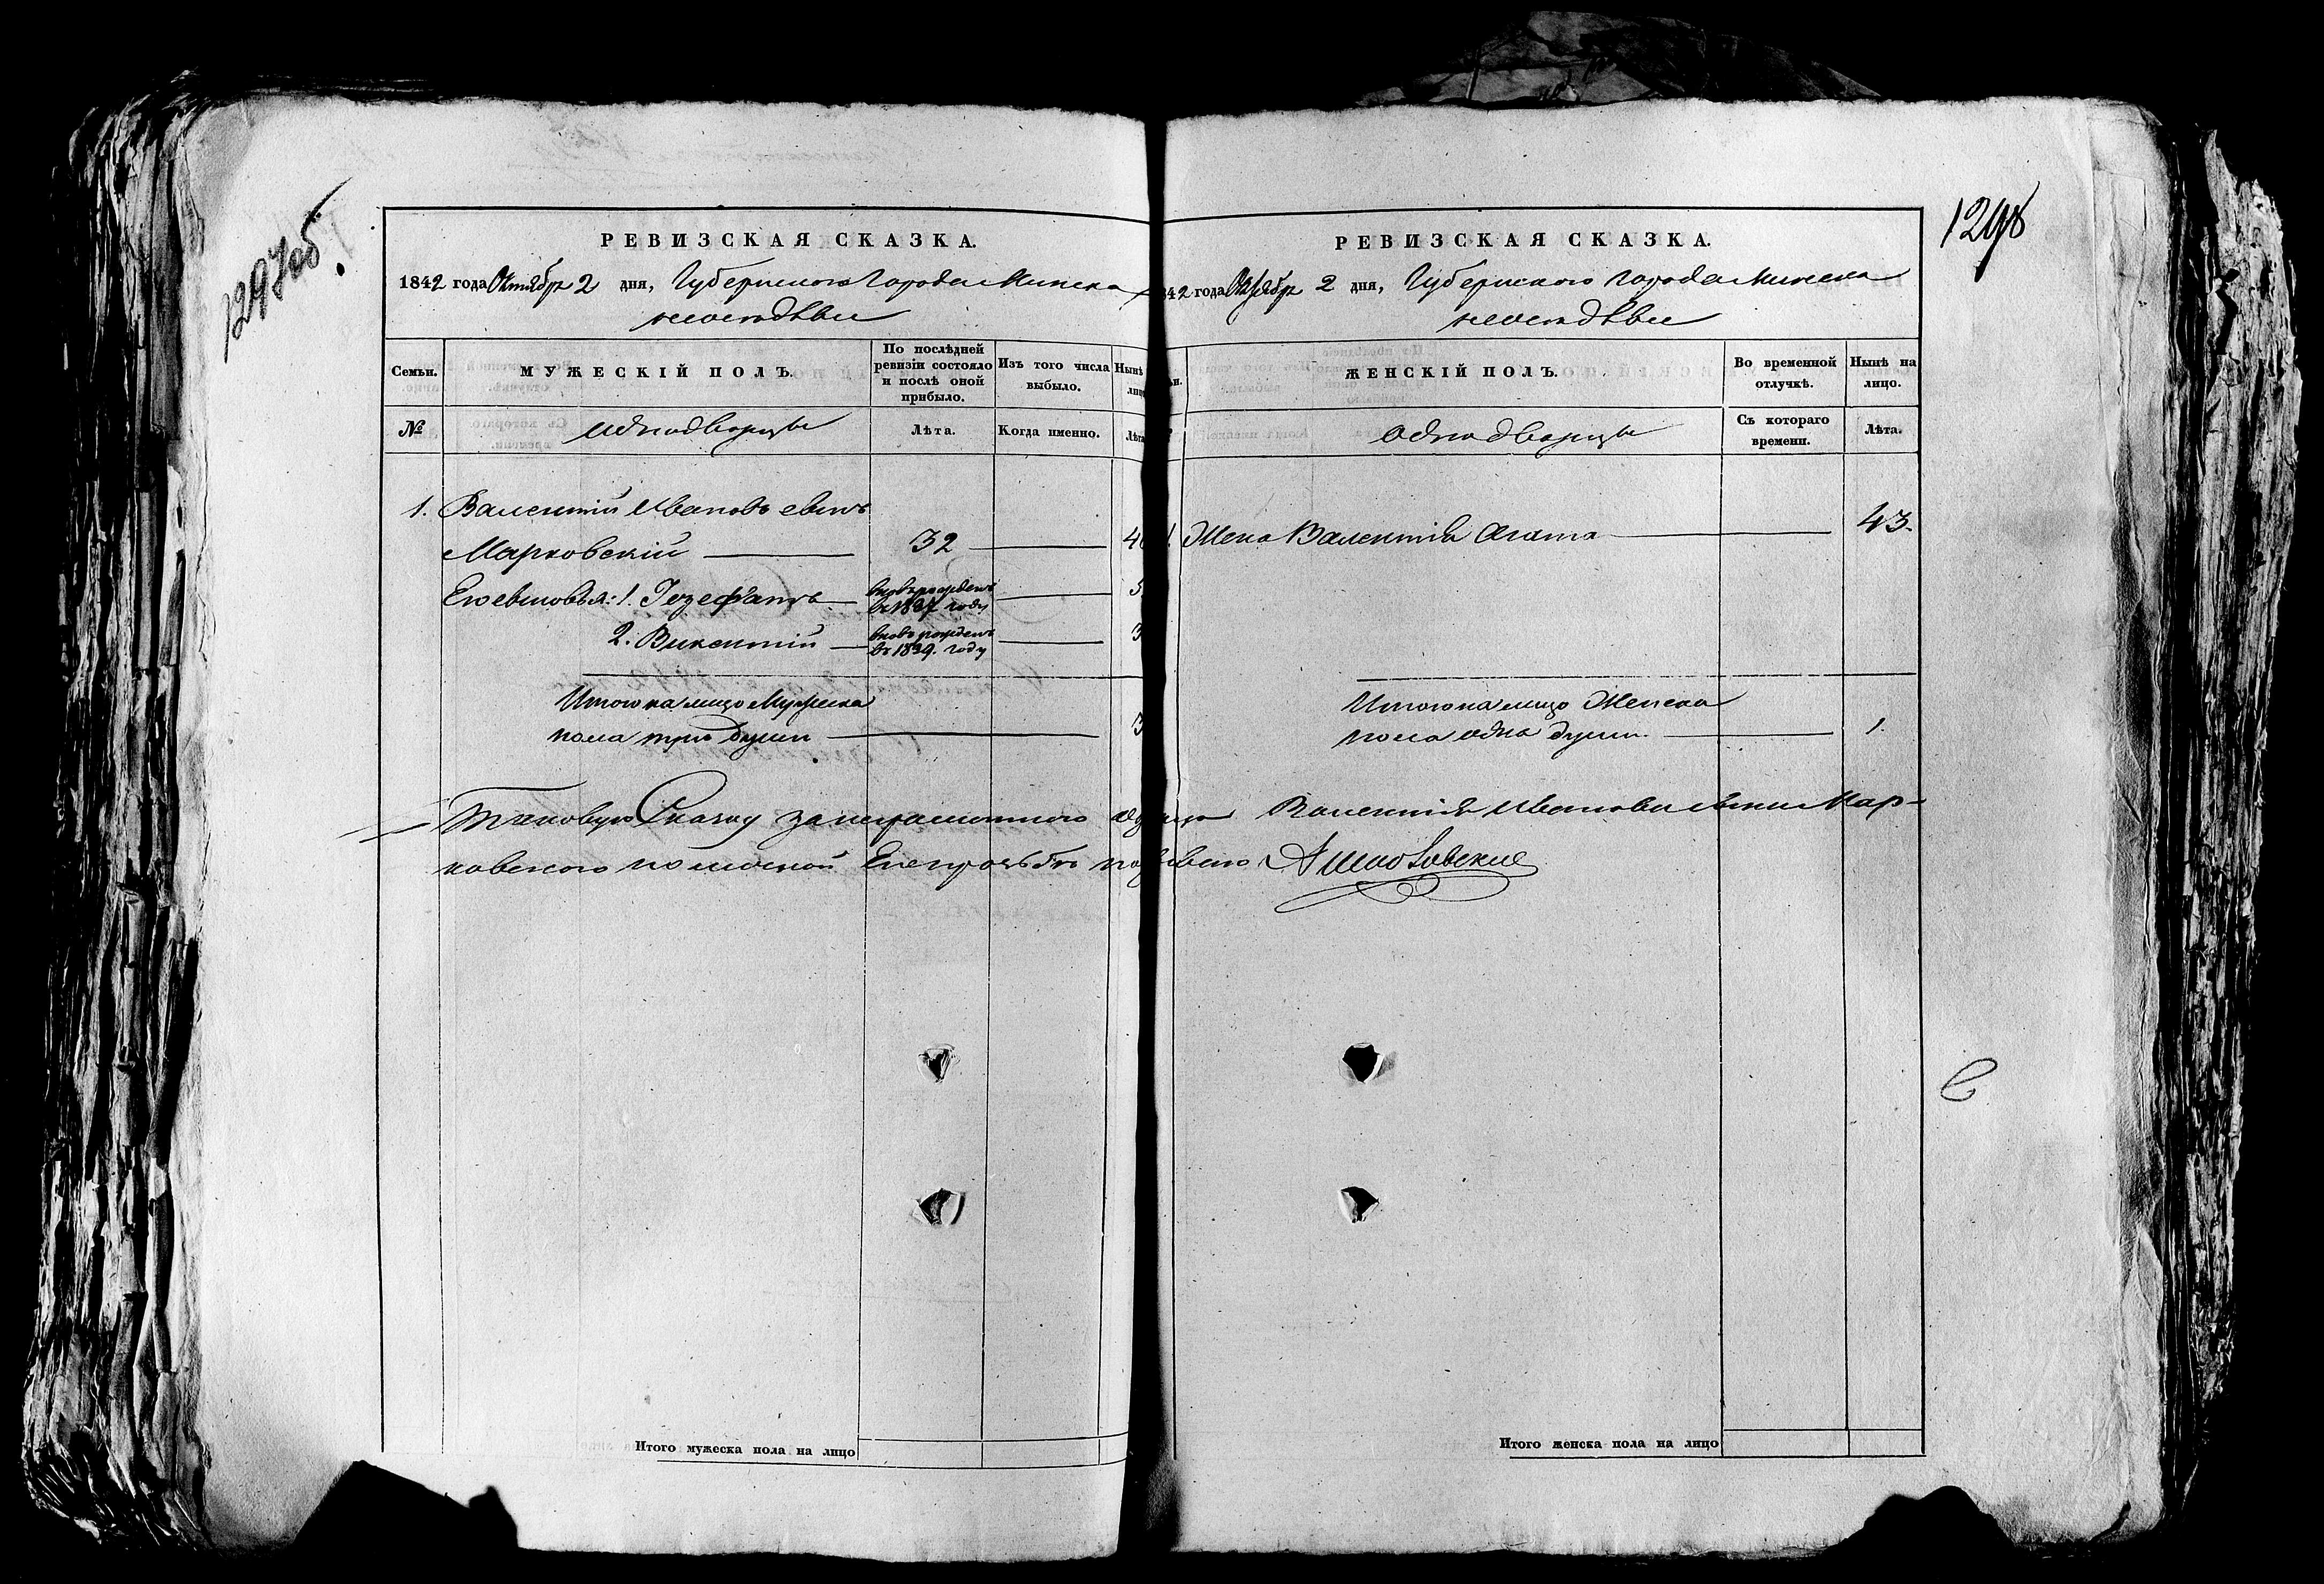 1297об.
РЕВИЗСКАЯ СКАЗКА.
1842 года Октября 2 дня, Губернского Города Минска
Семьи.
МУЖЕСКІЙ ПОЛЪ.
По послѣдней ревизіи состояло и послѣ оной прибыло.
Изъ того числа выбыло.
Нынѣ
№
однодворцы
Лѣта.
Когда именно.
Лѣта
1. Валентій Ивановъ сынъ
Марковскій 32
Его сыновья: 1. Іозефатъ вновь рожденъ в 1837 году 5
2. Викентій вновь рожденъ въ 1839. году 3
Итого на лицо Мужеска
пола три души 3
Таковую Сказку за неграмотного
ковского по личной Его прозьбѣ
Итого мужеска пола на лицо
1298
РЕВИЗСКАЯ СКАЗКА.
842 года Октября 2 дня, Губернского Города Минска
ЖЕНСКІЙ ПОЛЪ.
Во временной отлучкѣ.
Нынѣ на лицо.
однодворцы
Съ котораго времени.
Лѣта.
1. Жена Валентія Агата 43.
Итого на лицо Женска
пола одна душа 1.
Валентія Иванова сына Мар-
Итого женска пола на лицо